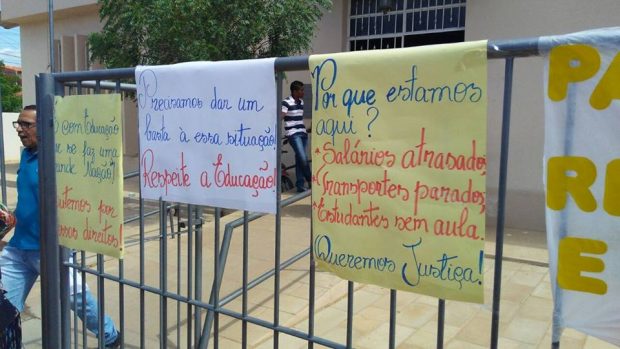 É com Educação
que se faz uma
grande Nação!
Lutemos por
nossos direitos!
Precisamos dar um
basta à essa situação!
Respeite a Educação!
Por que estamos
aqui?
*Salários atrasados,
*Transportes parados,
*Estudantes sem aula.
Queremos Justiça!
PA
RE
E